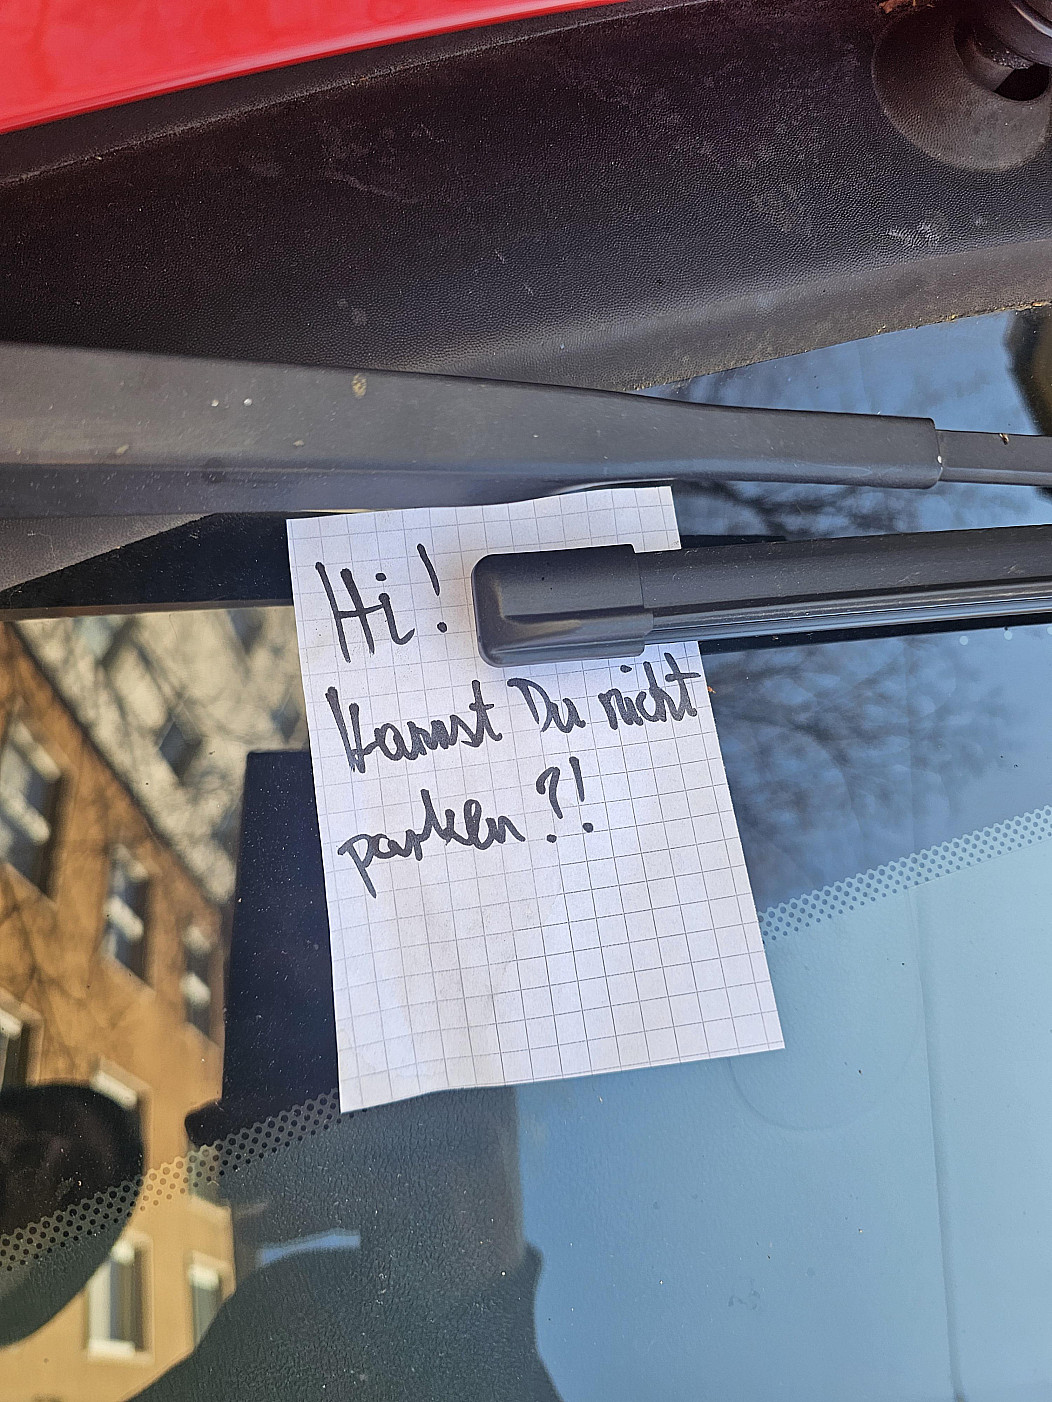 Hi!
Kannst Du nicht
parken?!